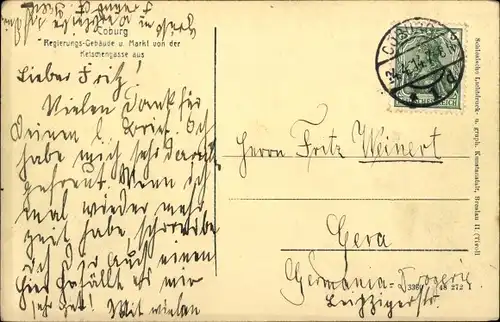 Coburg
Regierungs-Gebäude u. Markt von der
Ketschengasse aus
Lieber Fritz!
Vielen Dank für
Deinen l. Brief. Ich
habe mich sehr darüber
gefreut. Wenn ich
mal wieder mehr
Zeit habe, schreibe
ich Dir auch einen
hier gefällt es mir
sehr gut! Mit vielen
COBURG
Herrn Fritz Weinert
Gera
Germania-Drogerie
Leipzigerstr.
Schlesische Lichtdruck- u. graph. Kunstanstalt, Breslau II (Tivoli)
3380 48 272